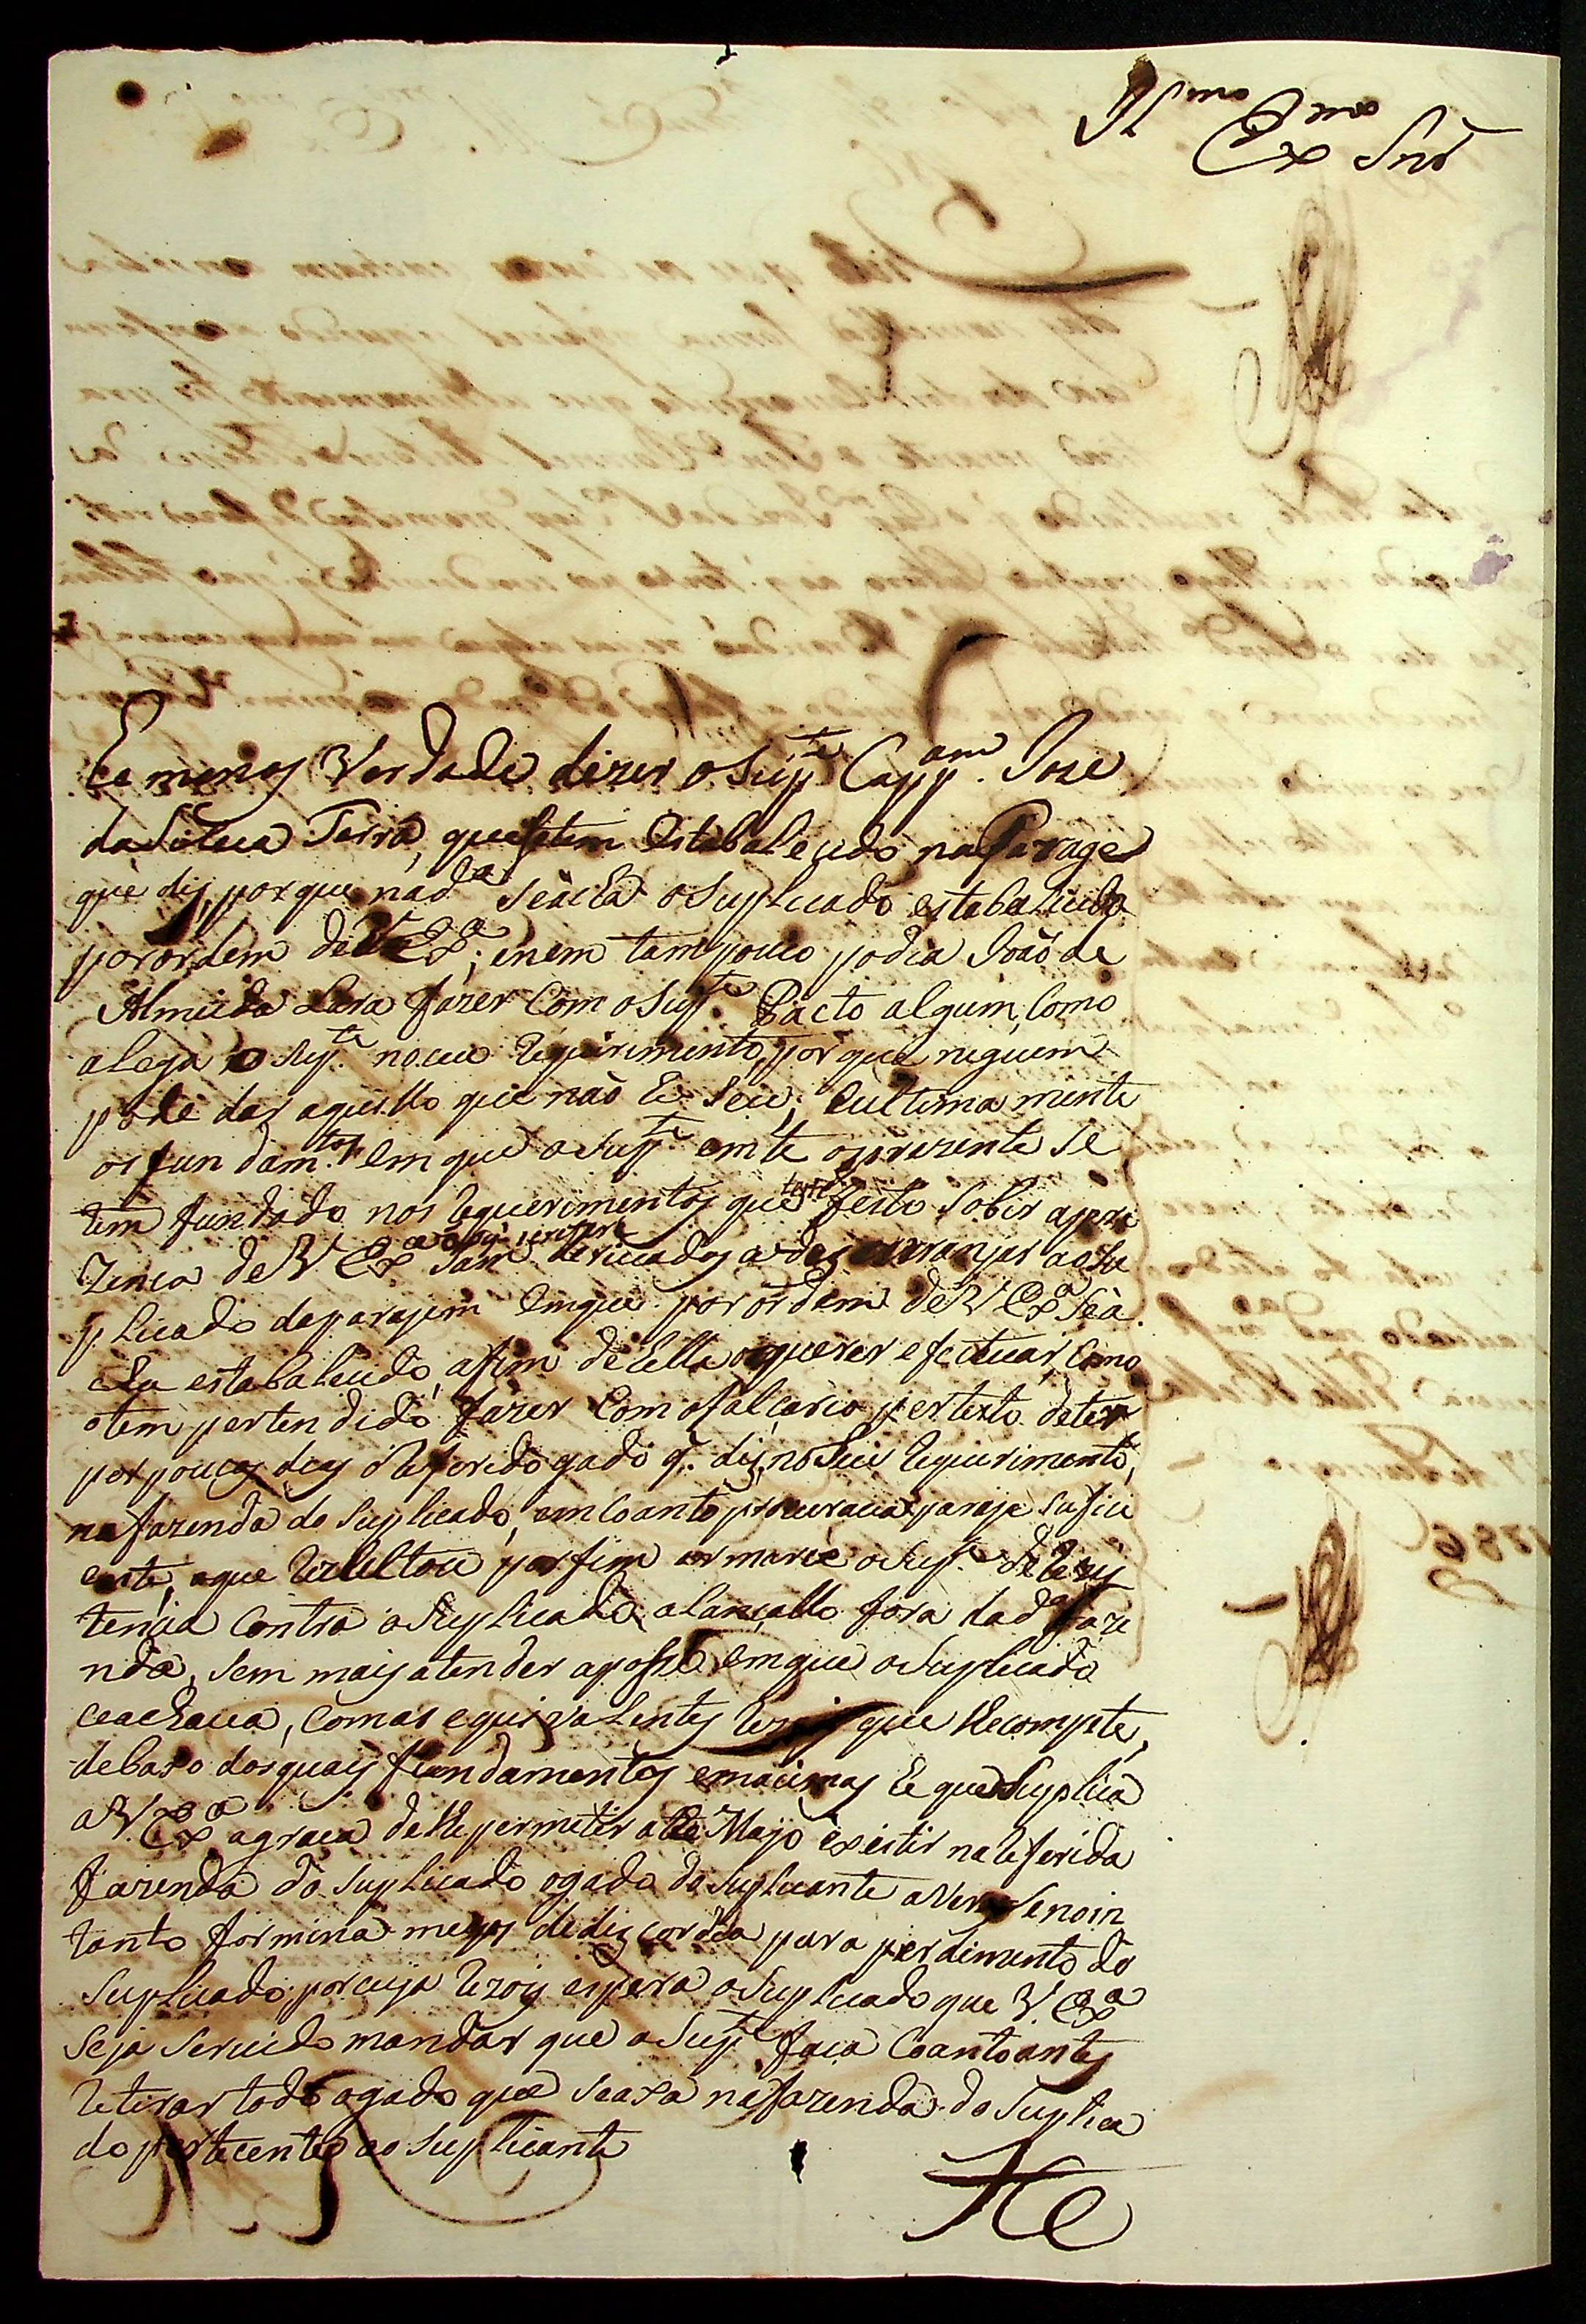 Il.mo
Ex.mo Snr̃
Ce menos Verdade dizer o Sup.te Capp.am Joze
da Silva Terra, que se tem Estabalecido na Parage
que dis, porque na d.a se acha o Suplicado estabalicido
por ordem de V Ex.a; e nem tam pouco podia João de
Almeida Lara fazer Com o Sup.te Pacto algum, Como
alega o Sup.te no ceu Requirimento, porque niguem
pode dar aquillo que não he Seu; Eultima mente
os fun dam.tos em que o Sup.te em te o prezente se
tem fundado nos Requerimentos que tem feito Sobir apre
Zenca de V Ex.a sam derivados a desarranjar ao Su
plicado da parajem Em que por ordem de V Ex.a Se a
cha estabalicido, afim de Elle o querer efectuar, Como
o tem pertendido fazer Com o falcario pertexto de ter
por poucos dias o Referido gado q. dis, no Seu Requirimento,
na fazenda do Suplicado, em Coanto procurava paraje Sufici
ente, a que Rezultou por fim armarce o Sup.te de Rezis
tencia Contra o Suplicado, a lancallo fora da d.a faze
nda, Sem mais atender aposse em que o Suplicado
ceachava, Com as equivalentes Rezois que lhe compte,
debaxo dos quais fundamentos e macimas he que Suplica
a V. Ex.a agraca de lhe permetir athe Mayo existir na Referida
fazenda do Suplicado o gado do Suplicante a Ver se no in
tanto formina meyos de discordia para perdimento do
Suplicado, por cuja Rezois espera o Suplicado que V. Ex.a
Seja Servido mandar que o Sup.te faca Coanto antes
Retirar todo o gado que seaxa na fazenda do Suplica
do pertecente ao Suplicante